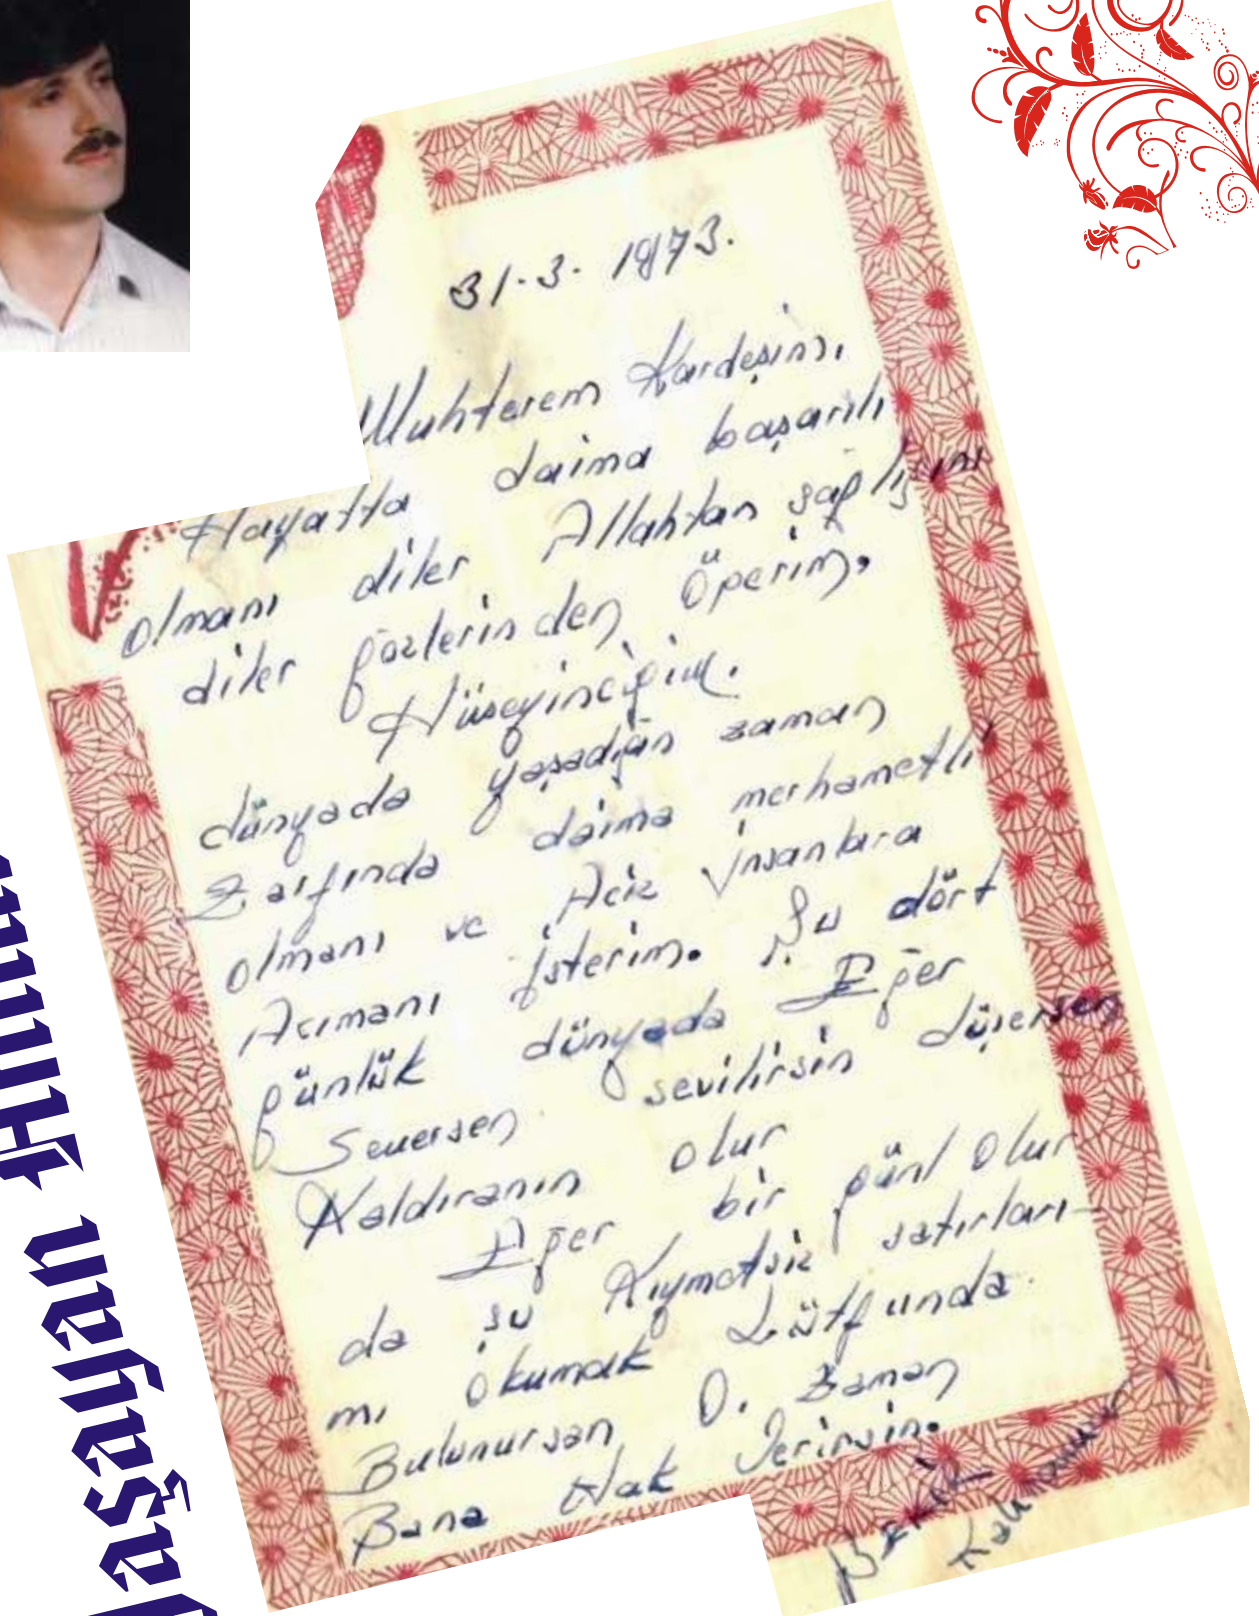 31.3.1973.
Muhterem Kardeşim,
Hayatta daima başarılı
olmanı diler Allahtan sağlığını
diler gözlerinden öperim.
Hüseyinciğim.
dünyada yaşadığın zaman
Zarfında daima merhametli
olmanı ve Aciz İnsanlara
Acımanı İsterim. Şu dört
günlük dünyada Eğer
Seversen sevilirsin düşersen
Kaldıranın olur
Eğer bir gün! Olur
da şu Kıymatsiz satırları-
mı Okumak Lütfunda
Bulunursan O. Zaman
Bana Hak Verirsin.